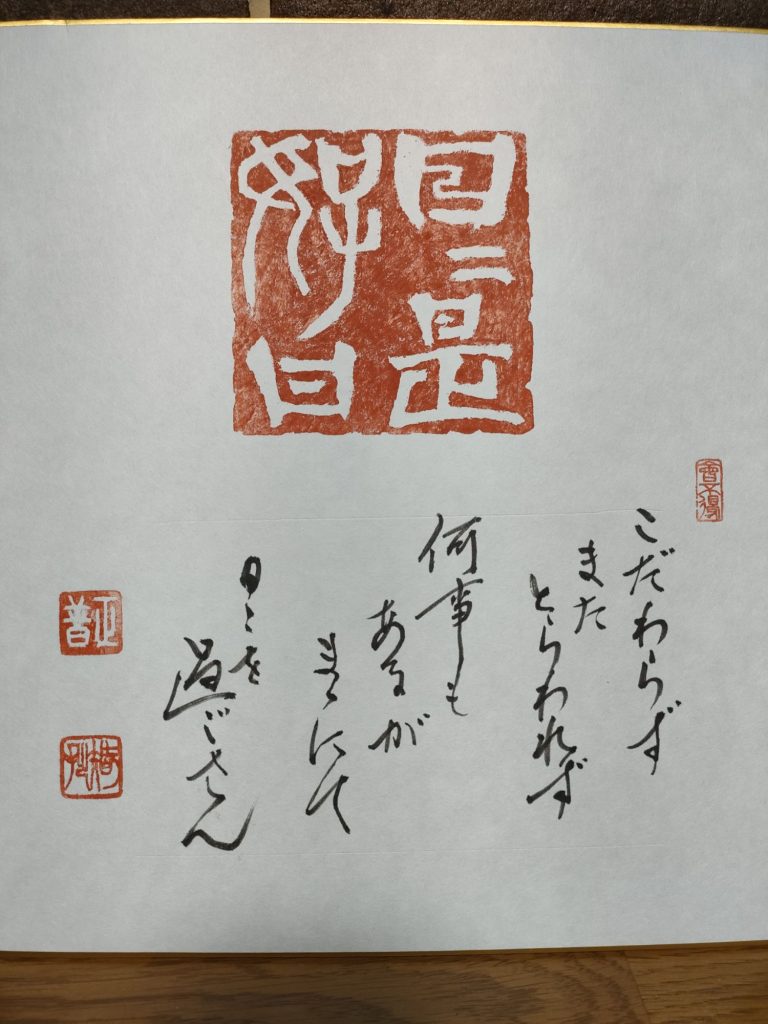 日々是
好日
こだわらず
また
とらわれず
何事も
あるが
まゝにて
日々を
過ごさん